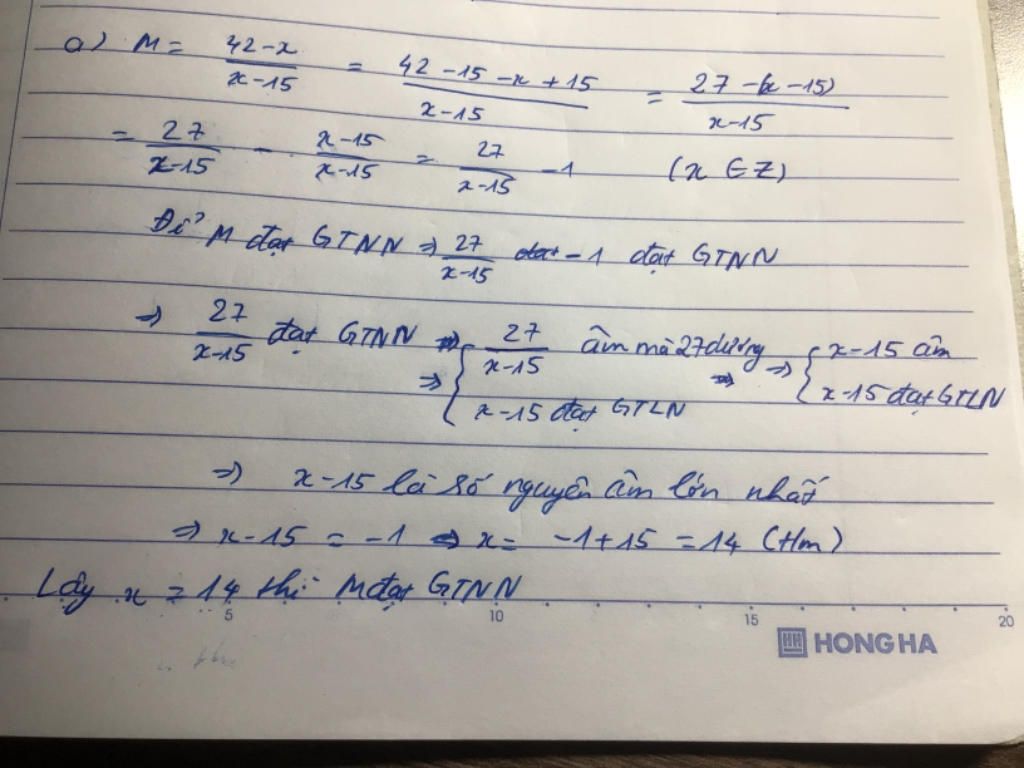 a) M = 42-x / x-15 = 42-15-x+15 / x-15 = 27-(x-15) / x-15
= 27 / x-15 - x-15 / x-15 = 27 / x-15 -1 (x ∈ Z)
Để M đạt GTNN ⇒ 27 / x-15 -1 đạt GTNN
⇒ 27 / x-15 đạt GTNN ⇒ { 27 / x-15 âm mà 27 dương ⇒ { x-15 âm
x-15 đạt GTLN x-15 đạt GTLN
⇒ x-15 là số nguyên âm lớn nhất
⇒ x-15 = -1 ⇒ x = -1+15 = 14 (t/m)
Lậy x = 14 thì M đạt GTNN
5 10 15 20
HONG HA